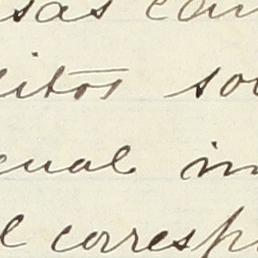 sas con
litos so
cual in
l corresp